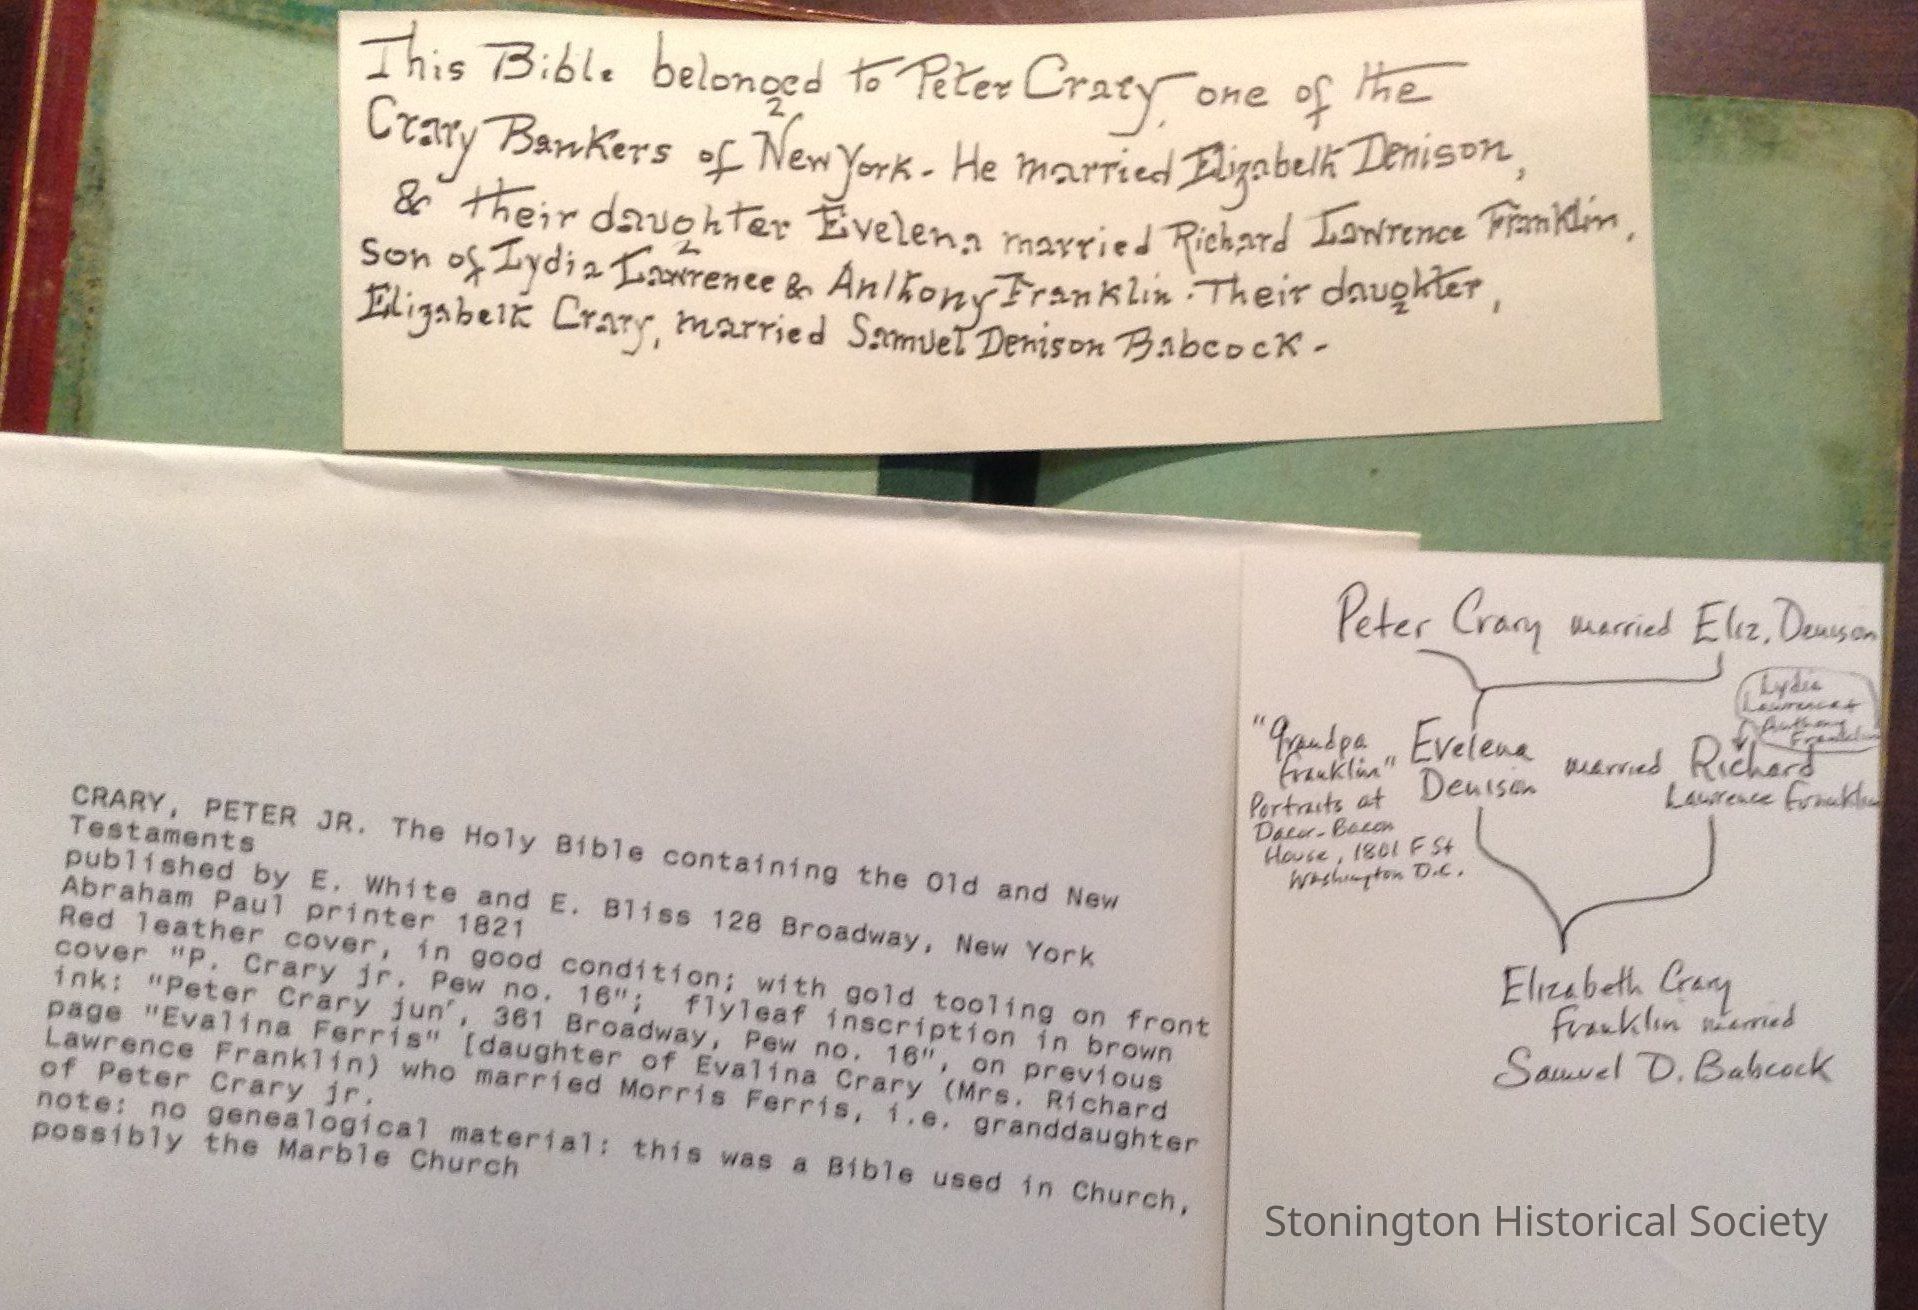 This Bible belonged to Peter Crary, one of the
Crary Bankers of New York - He married Elizabeth Denison,
& their daughter Evelena married Richard Lawrence Franklin,
son of Lydia Lawrence & Anthony Franklin. Their daughter,
Elizabeth Crary, married Samuel Denison Babcock -
CRARY, PETER JR. The Holy Bible containing the Old and New
Testaments
published by E. White and E. Bliss 128 Broadway, New York
Abraham Paul printer 1821
Red leather cover, in good condition; with gold tooling on front
cover "P. Crary jr. Pew no. 16"; flyleaf inscription in brown
ink: "Peter Crary junr, 361 Broadway, Pew no. 16", on previous
page "Evalina Ferris" [daughter of Evalina Crary (Mrs. Richard
Lawrence Franklin) who married Morris Ferris, i.e. granddaughter
of Peter Crary jr.
note: no genealogical material: this was a Bible used in Church,
possibly the Marble Church
Peter Crary married Eliz. Denison
Lydia
Lawrence +
Anthony
Franklin
"Grandpa
Franklin"
Portraits at
Dacor-Bacon
House, 1801 F St
Washington D.C.
Evelena
Denison
married
Richard
Lawrence Franklin
Elizabeth Crary
Franklin married
Samuel D. Babcock
Stonington Historical Society